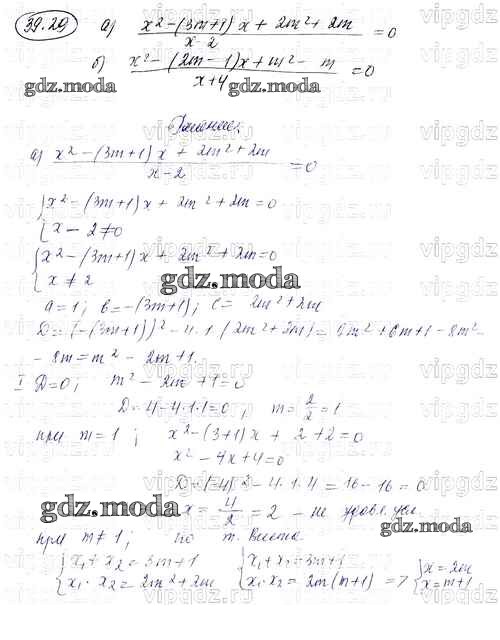 39.29 а) x² - (3m+1)x + 2m² + 2m / x-2 = 0
б) x² - (2m-1)x + m² - m / x+4 = 0
gdz.moda gdz.moda
Решение:
а) x² - (3m+1)x + 2m² + 2m / x-2 = 0
{ x² - (3m+1)x + 2m² + 2m = 0
x - 2 ≠ 0
{ x² - (3m+1)x + 2m² + 2m = 0
x ≠ 2
gdz.moda
a = 1; b = -(3m+1); c = 2m² + 2m
D = (-(3m+1))² - 4·1·(2m² + 2m) = 9m² + 6m + 1 - 8m² -
- 8m = m² - 2m + 1.
I D = 0; m² - 2m + 1 = 0
D = 4 - 4·1·1 = 0; m = 2/2 = 1
при m = 1; x² - (3+1)x + 2 + 2 = 0
x² - 4x + 4 = 0
D = (-4)² - 4·1·4 = 16 - 16 = 0
gdz.moda
x = 4/2 = 2 - не удовл. усл.
gdz.moda
при m ≠ 1; по т. Виета
{ x₁ + x₂ = 3m+1 { x₁ + x₂ = 3m+1 { x = 2m
x₁ · x₂ = 2m² + 2m x₁ · x₂ = 2m(m+1) => x = m+1